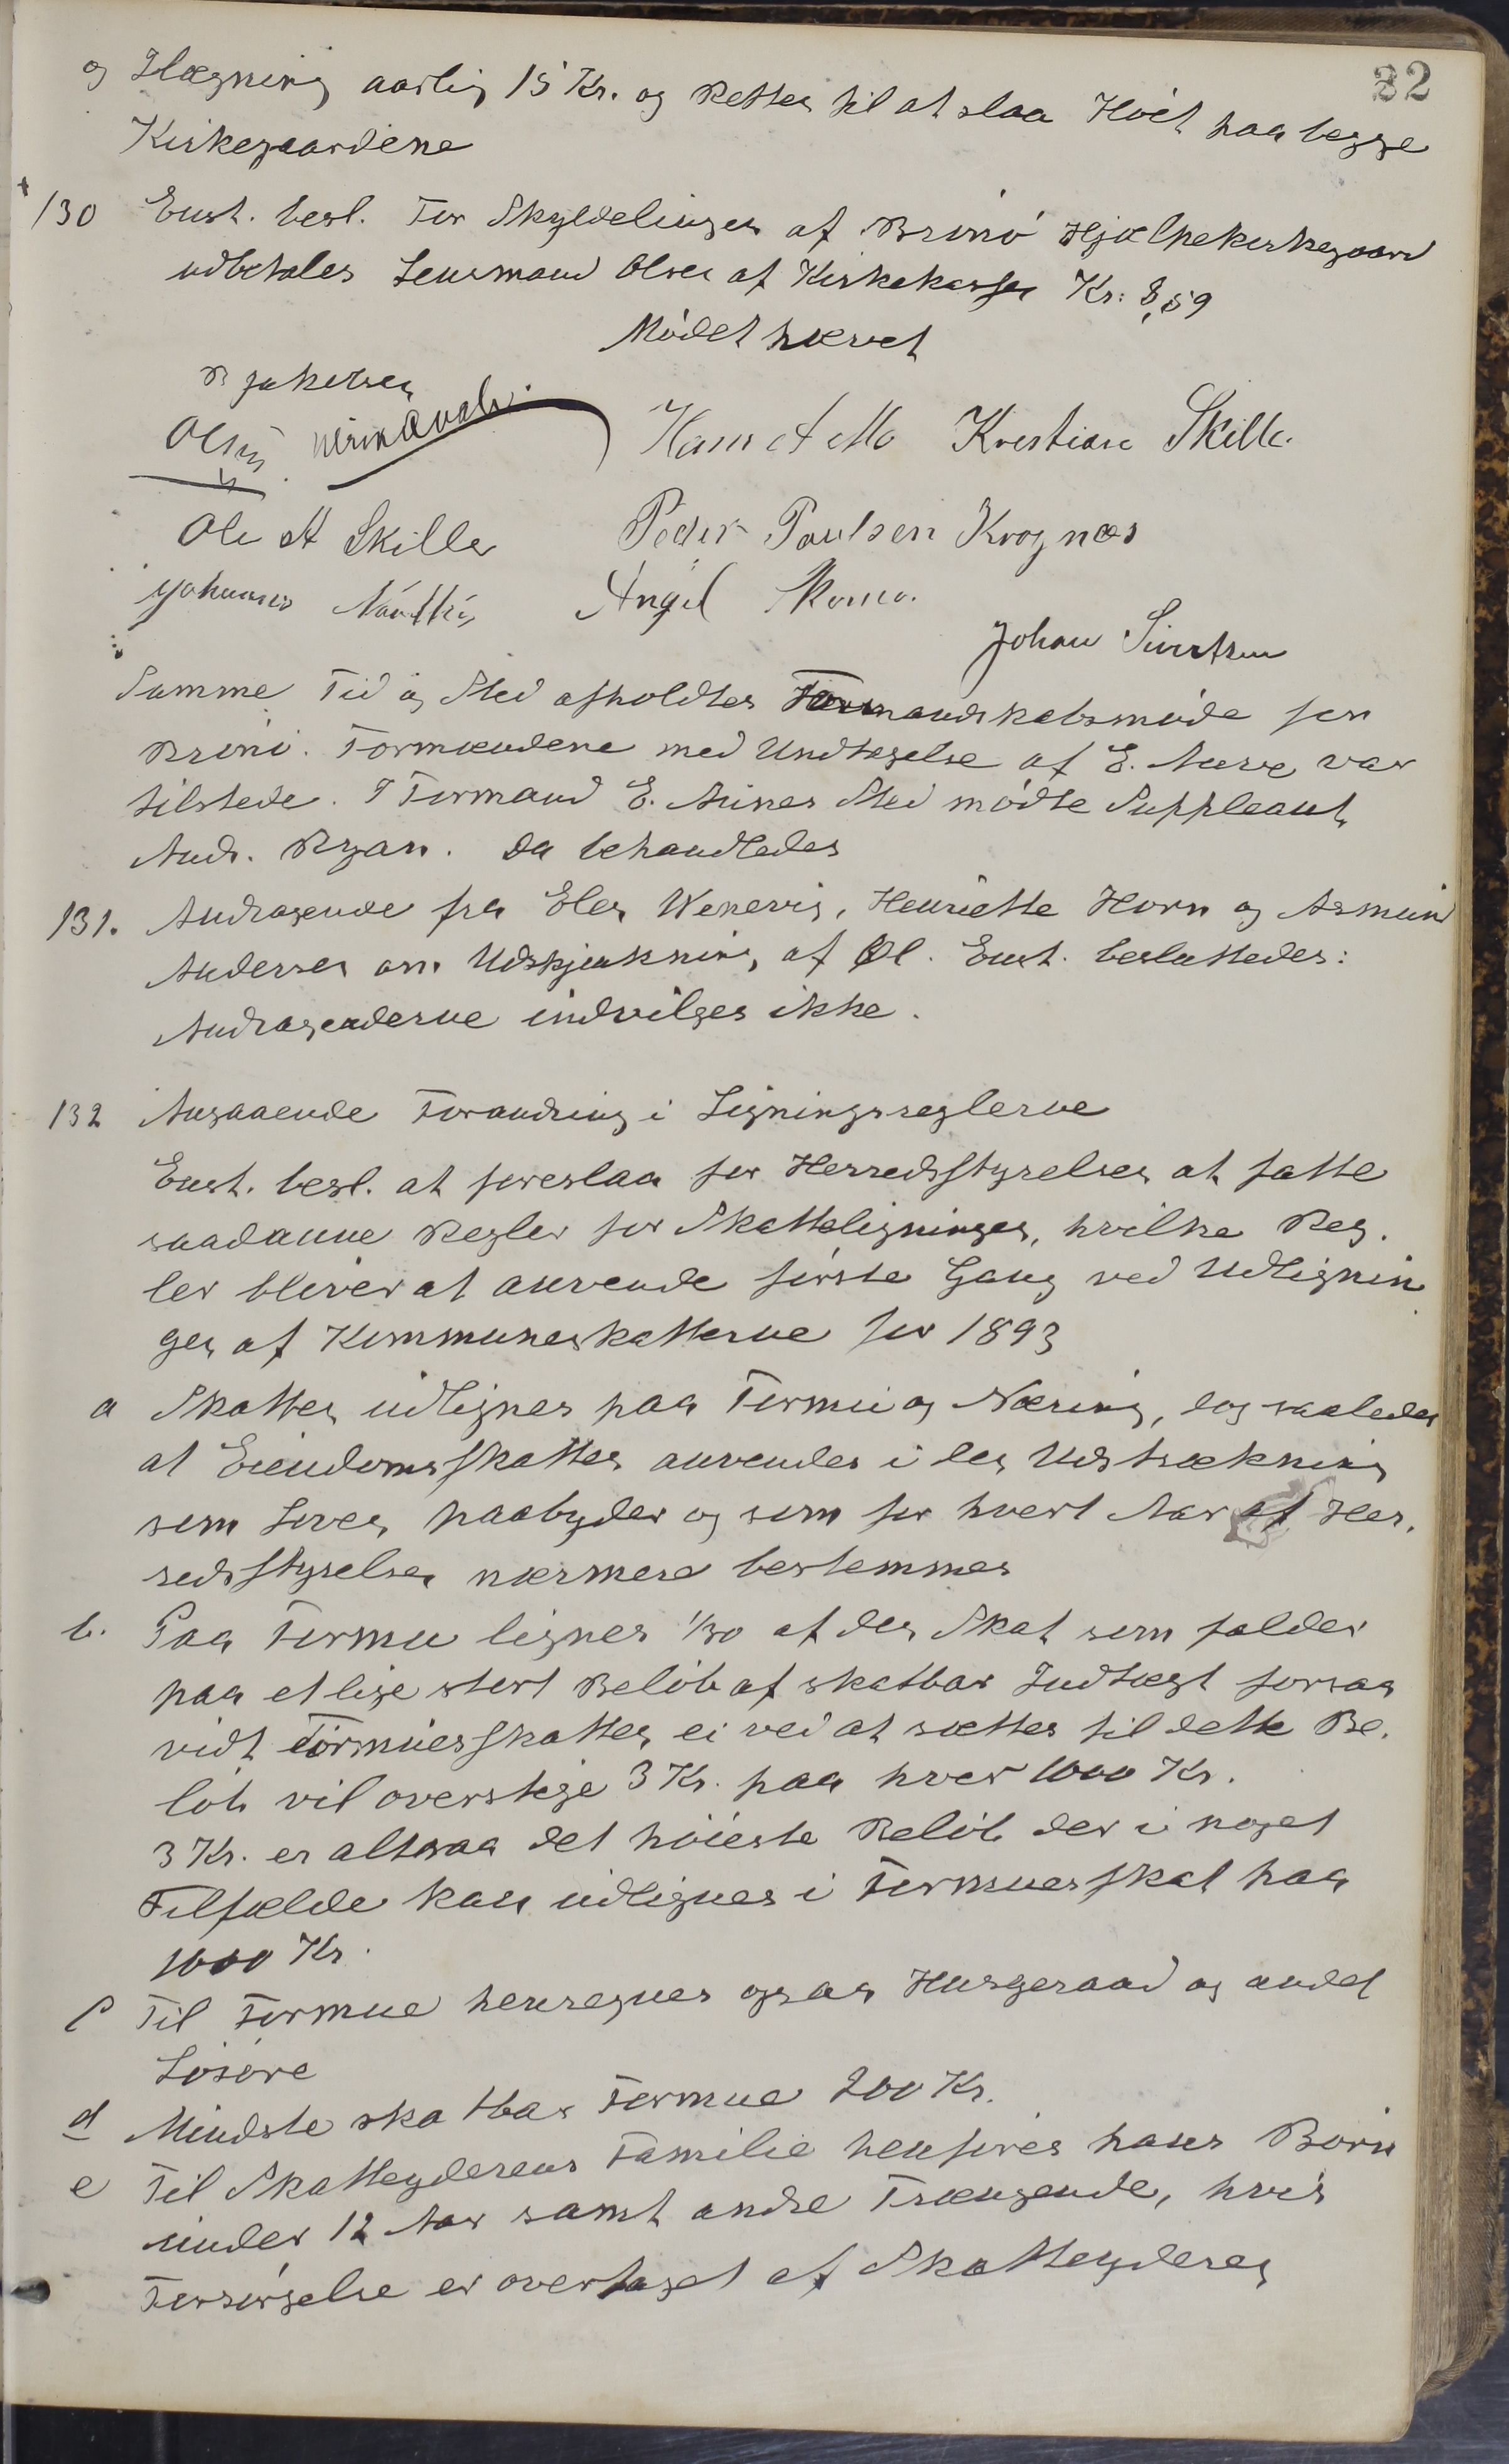 32
og Hægning aarlig 15 Kr. og Retten til at slaa Høet paa begge
Kirkegaardene
130 Enst. besl. For Skyldelingen af Brønø Hjælpekirkegaard
udbetales Lensmand Olsen af Kirkekassen Kr: 8,59
Mødet hævet
B Jakobsen
Olsen Hans A Mo Kristian Skille.
Ole A Skille Peder Paulsen Krognæs
Johannes Angel Skomo.
Johan Sivertsen
Samme Tid og Sted afholdtes Formandskabsmøde for
Brønø. Formændene med Undtagelse af E. Aune var
tilstede. I Formand E. Aunes Sted mødte Suppleant
And. Ryan. Da behandledes
131. Andragende fra Elen Wenevig, Henriette Horn og Asmund
Andersen om Udskjænkning af Øl. Enst. besluttedes:
Andragenderne indvilges ikke.
132 Angaaende Forandring i Ligningsreglerne
Enst. besl. at foreslaa for Herredsstyrelsen at fatte
saadanne Regler for Skatteligningen, hvilke Reg.
ler bliver at anvende første Gang ved Udlignin
gen af Kommuneskatterne for 1893
a Skatten udlignes paa Formue og Næring, dog saaledes
at Eiendomsskatten anvendes i den Udstrækning
som Loven paabyder og som for hvert Aar af Her.
redsstyrelsen nærmere bestemmes
b. Paa Formue lignes 1/30 af den Skat som falder
paa et lige stort Beløb af skatbar Indtægt forsaa
vidt Formuesskatten ei ved at sættes til dette Be.
løb vil overstige 3 Kr. paa hver 1000 Kr.
3 Kr. er altsaa det høieste Beløb der i noget
Tilfælde kan udlignes i Formuesskat paa
1000 Kr.
c Til Formue henregnes ogsaa Husgeraad og andet
Løsøre
d Mindste skatbar Formue 200 Kr.
e Til Skatteyderens Familie henføres hans Børn
under 12 Aar samt andre Trængende, hvis
Forsørgelse er overtaget af Skatteyderen